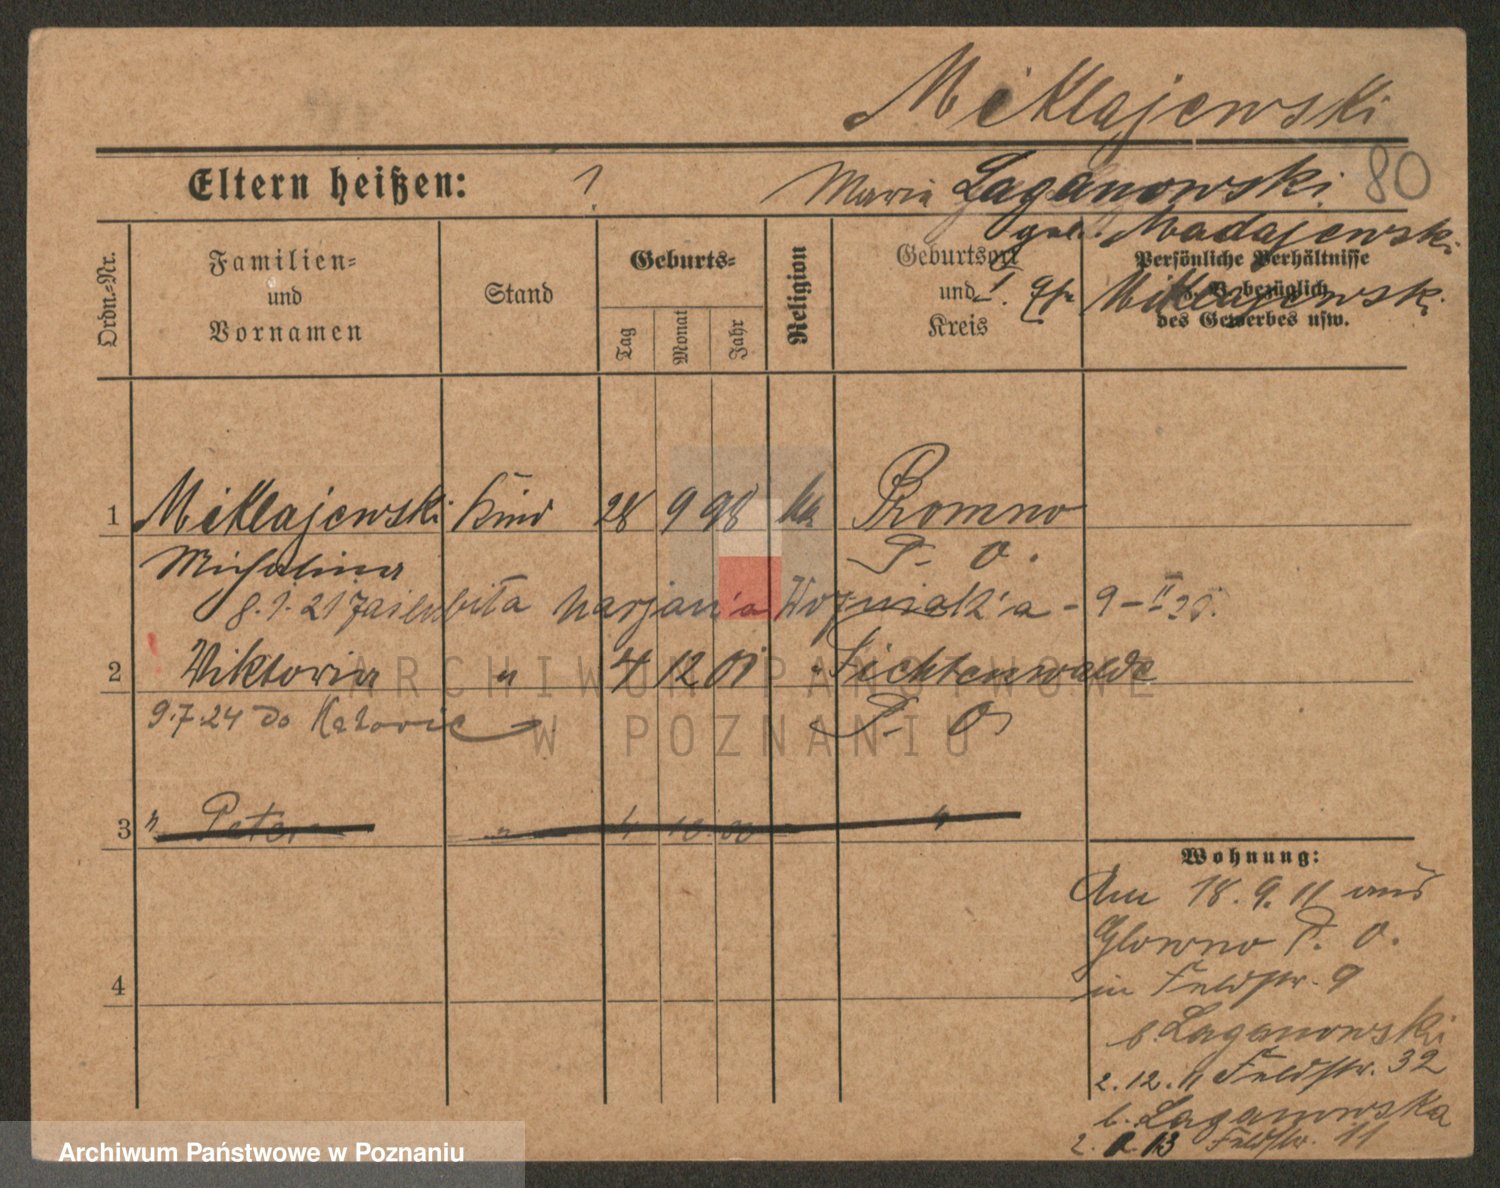 Miklajewski
Eltern heißen: ? Maria Laganowski 80
geb. Madajewski
I. Miklajewski
Ordn.-Nr.
Familien-
und
Vornamen
Stand
Geburts-
Tag
Monat
Jahr
Religion
Geburtsort
und
Kreis
Persönliche Verhältnisse
z. B. bezüglich
des Gewerbes usw.
1 Miklajewski Kind 28 9 98 ka Promno
Michalina P. O.
8.1.21 Marjan'a Woźniak'a - 9 - II
2 Viktoria " 4 12 01 " Fichtenwalde
9.7.24 do Katowic P. O.
3 " Peter " 4 10 "
4
Wohnung:
Am 18. 9. 11 aus
Glowno P. O.
in Feldstr. 9
b. Laganowski
2. 12. 11 Feldstr. 32
b. Laganowska
13 Feldstr. 11
ARCHIWUM PAŃSTWOWE
W POZNANIU
Archiwum Państwowe w Poznaniu